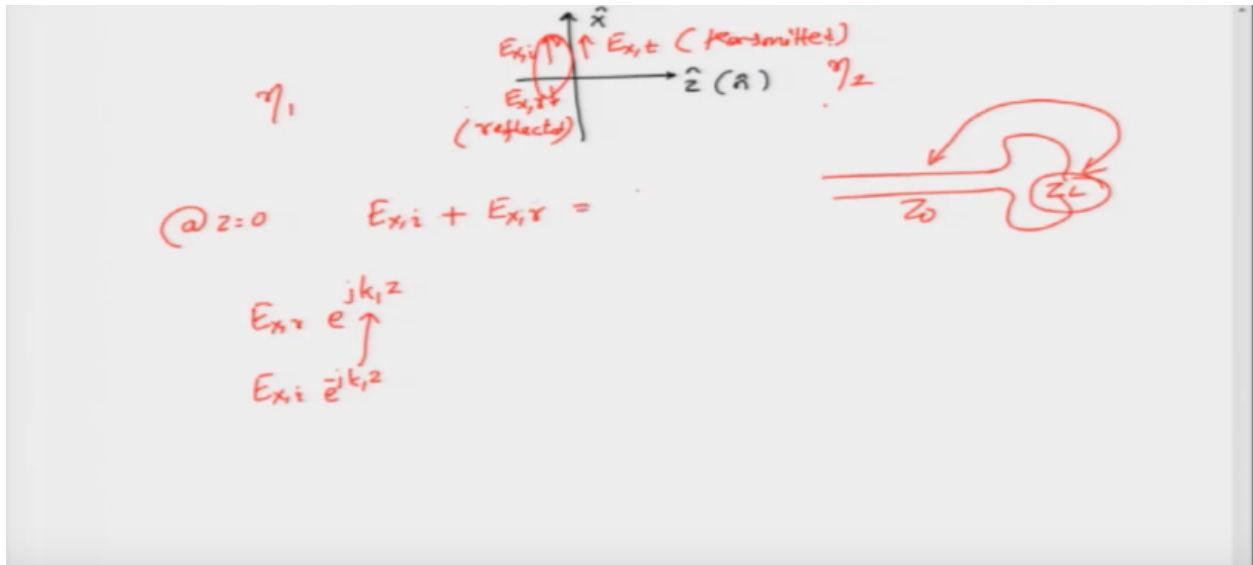 x̂
Ex,i Ex,t (transmitted)
ẑ (n̂) η2
η1
Ex,r
(reflected)
ZL
Z0
@ z=0 Ex,i + Ex,r =
Ex,r e^jk1z
Ex,i e^-jk1z